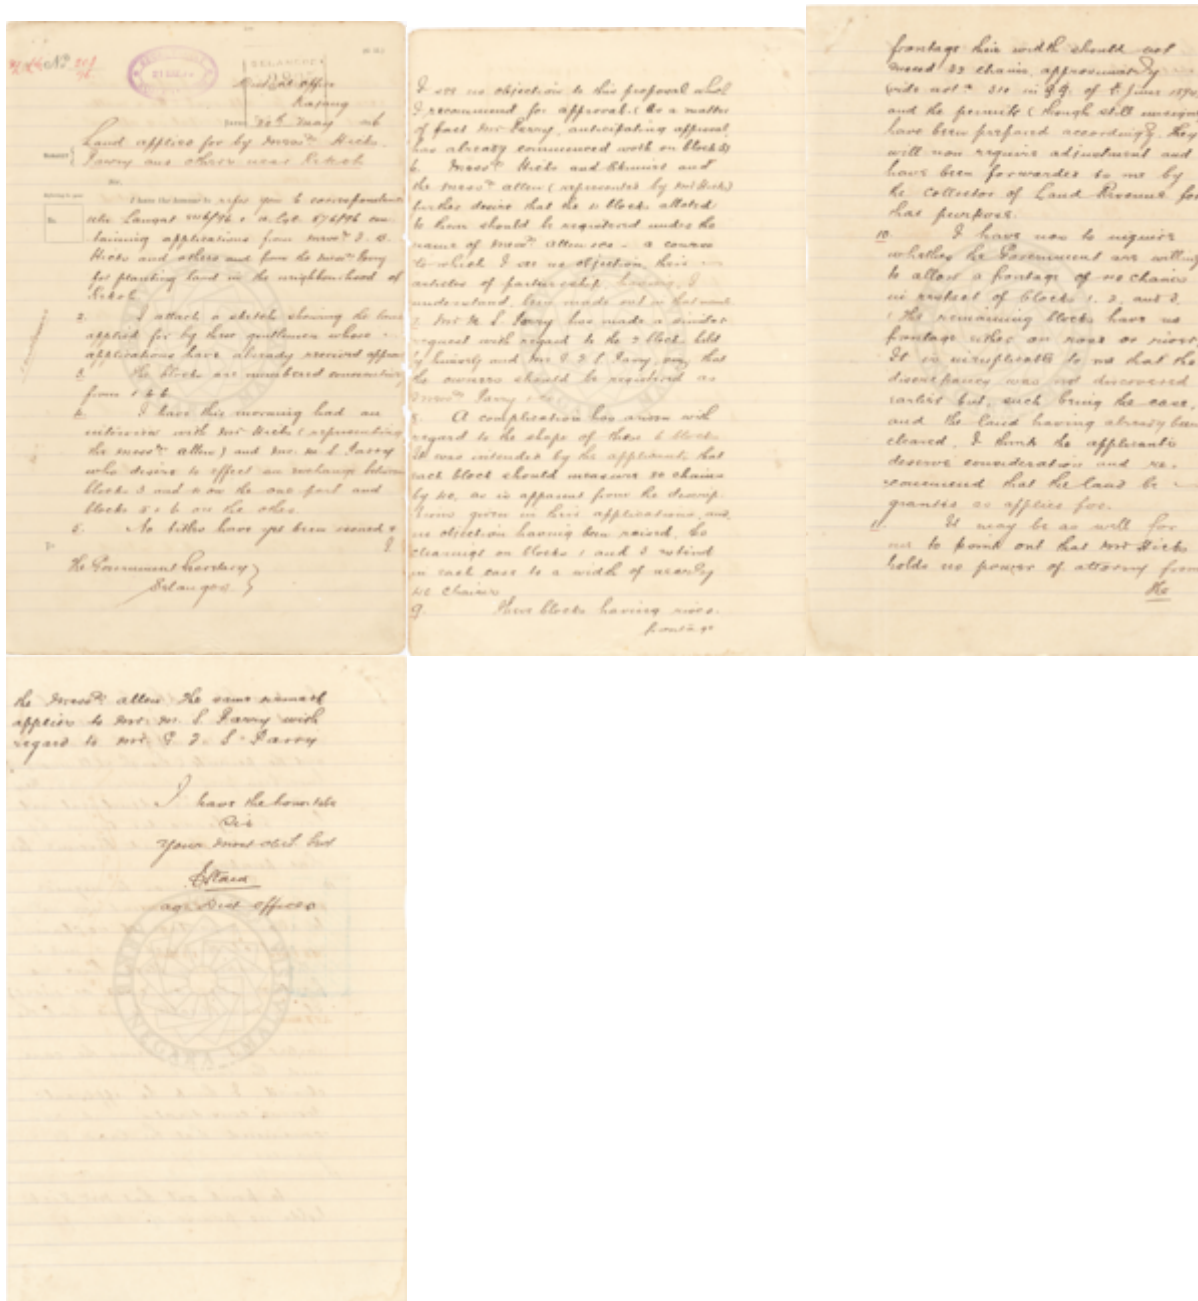 SELANGOR
District Office
Kajang
20th May 96
Land applied for by Messrs Hicks,
Parry and others near Reko
Sir,
I have the honour to refer you to correspondence
containing applications from Messrs
Hicks and others and from the Messrs Parry
for planting land in the neighbourhood of
Reko
2. I attach a sketch showing the land
applied for by these gentlemen whose
applications have already received approval
3. The blocks are numbered consecutively
from 1 to 6
4. I have this morning had an
interview with Mr Hicks (representing
the Messrs Allen) and Mr. M. S. Parry
who desire to effect an exchange between
blocks 3 and 4 on the one part and
blocks 5 & 6 on the other
5. No titles have yet been issued &
I
To
The Government Secretary
Selangor
I see no objection to this proposal which
I recommend for approval. (As a matter
of fact Mr Parry, anticipating approval,
has already commenced work on block 3)
6. Messrs Hicks and and
the Messrs Allen (represented by Mr Hicks)
further desire that the blocks allotted
to them should be registered under the
name of Messrs Allen - a course
to which I see no objection, their
articles of partnership, having, I
understand, been made out in that name
7. Mr M. S. Parry has made a similar
request with regard to the 2 blocks held
by himself and Mr S. Parry, viz, that
the owners should be registered as
Messrs Parry
8. A complication has arisen with
regard to the shape of these 6 blocks
It was intended by the applicants that
each block should measure 80 chains
by 40, as is apparent from the descrip
tions given in their applications, and
no objection having been raised, the
clearings on blocks 1 and 3 extend
in each case to a width of nearly
40 chains
9. These blocks having river
frontage
frontage their width should not
exceed chains, approximately
vide not n 310 in G.G. of 5 June 1894
and the permits (though still unsigned)
have been prepared accordingly. They
will now require adjustment and
have been forwarded to me by
the Collector of Land Revenue for
this purpose.
10. I have now to inquire
whether the Government are willing
to allow a frontage of 40 chains
in respect of blocks 1, 2, and 3.
(The remaining blocks have no
frontage either on road or river)
It is inexplicable to me that the
discrepancy was not discovered
earlier but, such being the case,
and the land having already been
cleared, I think the applicants
deserve consideration and re-
commend that the land be
granted as applied for.
11. It may be as well for
me to point out that Mr Hicks
holds no power of attorney from
the
the Messrs Allen. The same remark
applies to Mr. M. S. Parry with
regard to Mr. S. Parry
I have the honour to be
Sir
Your most obdt Servt
ag: Dist Officer